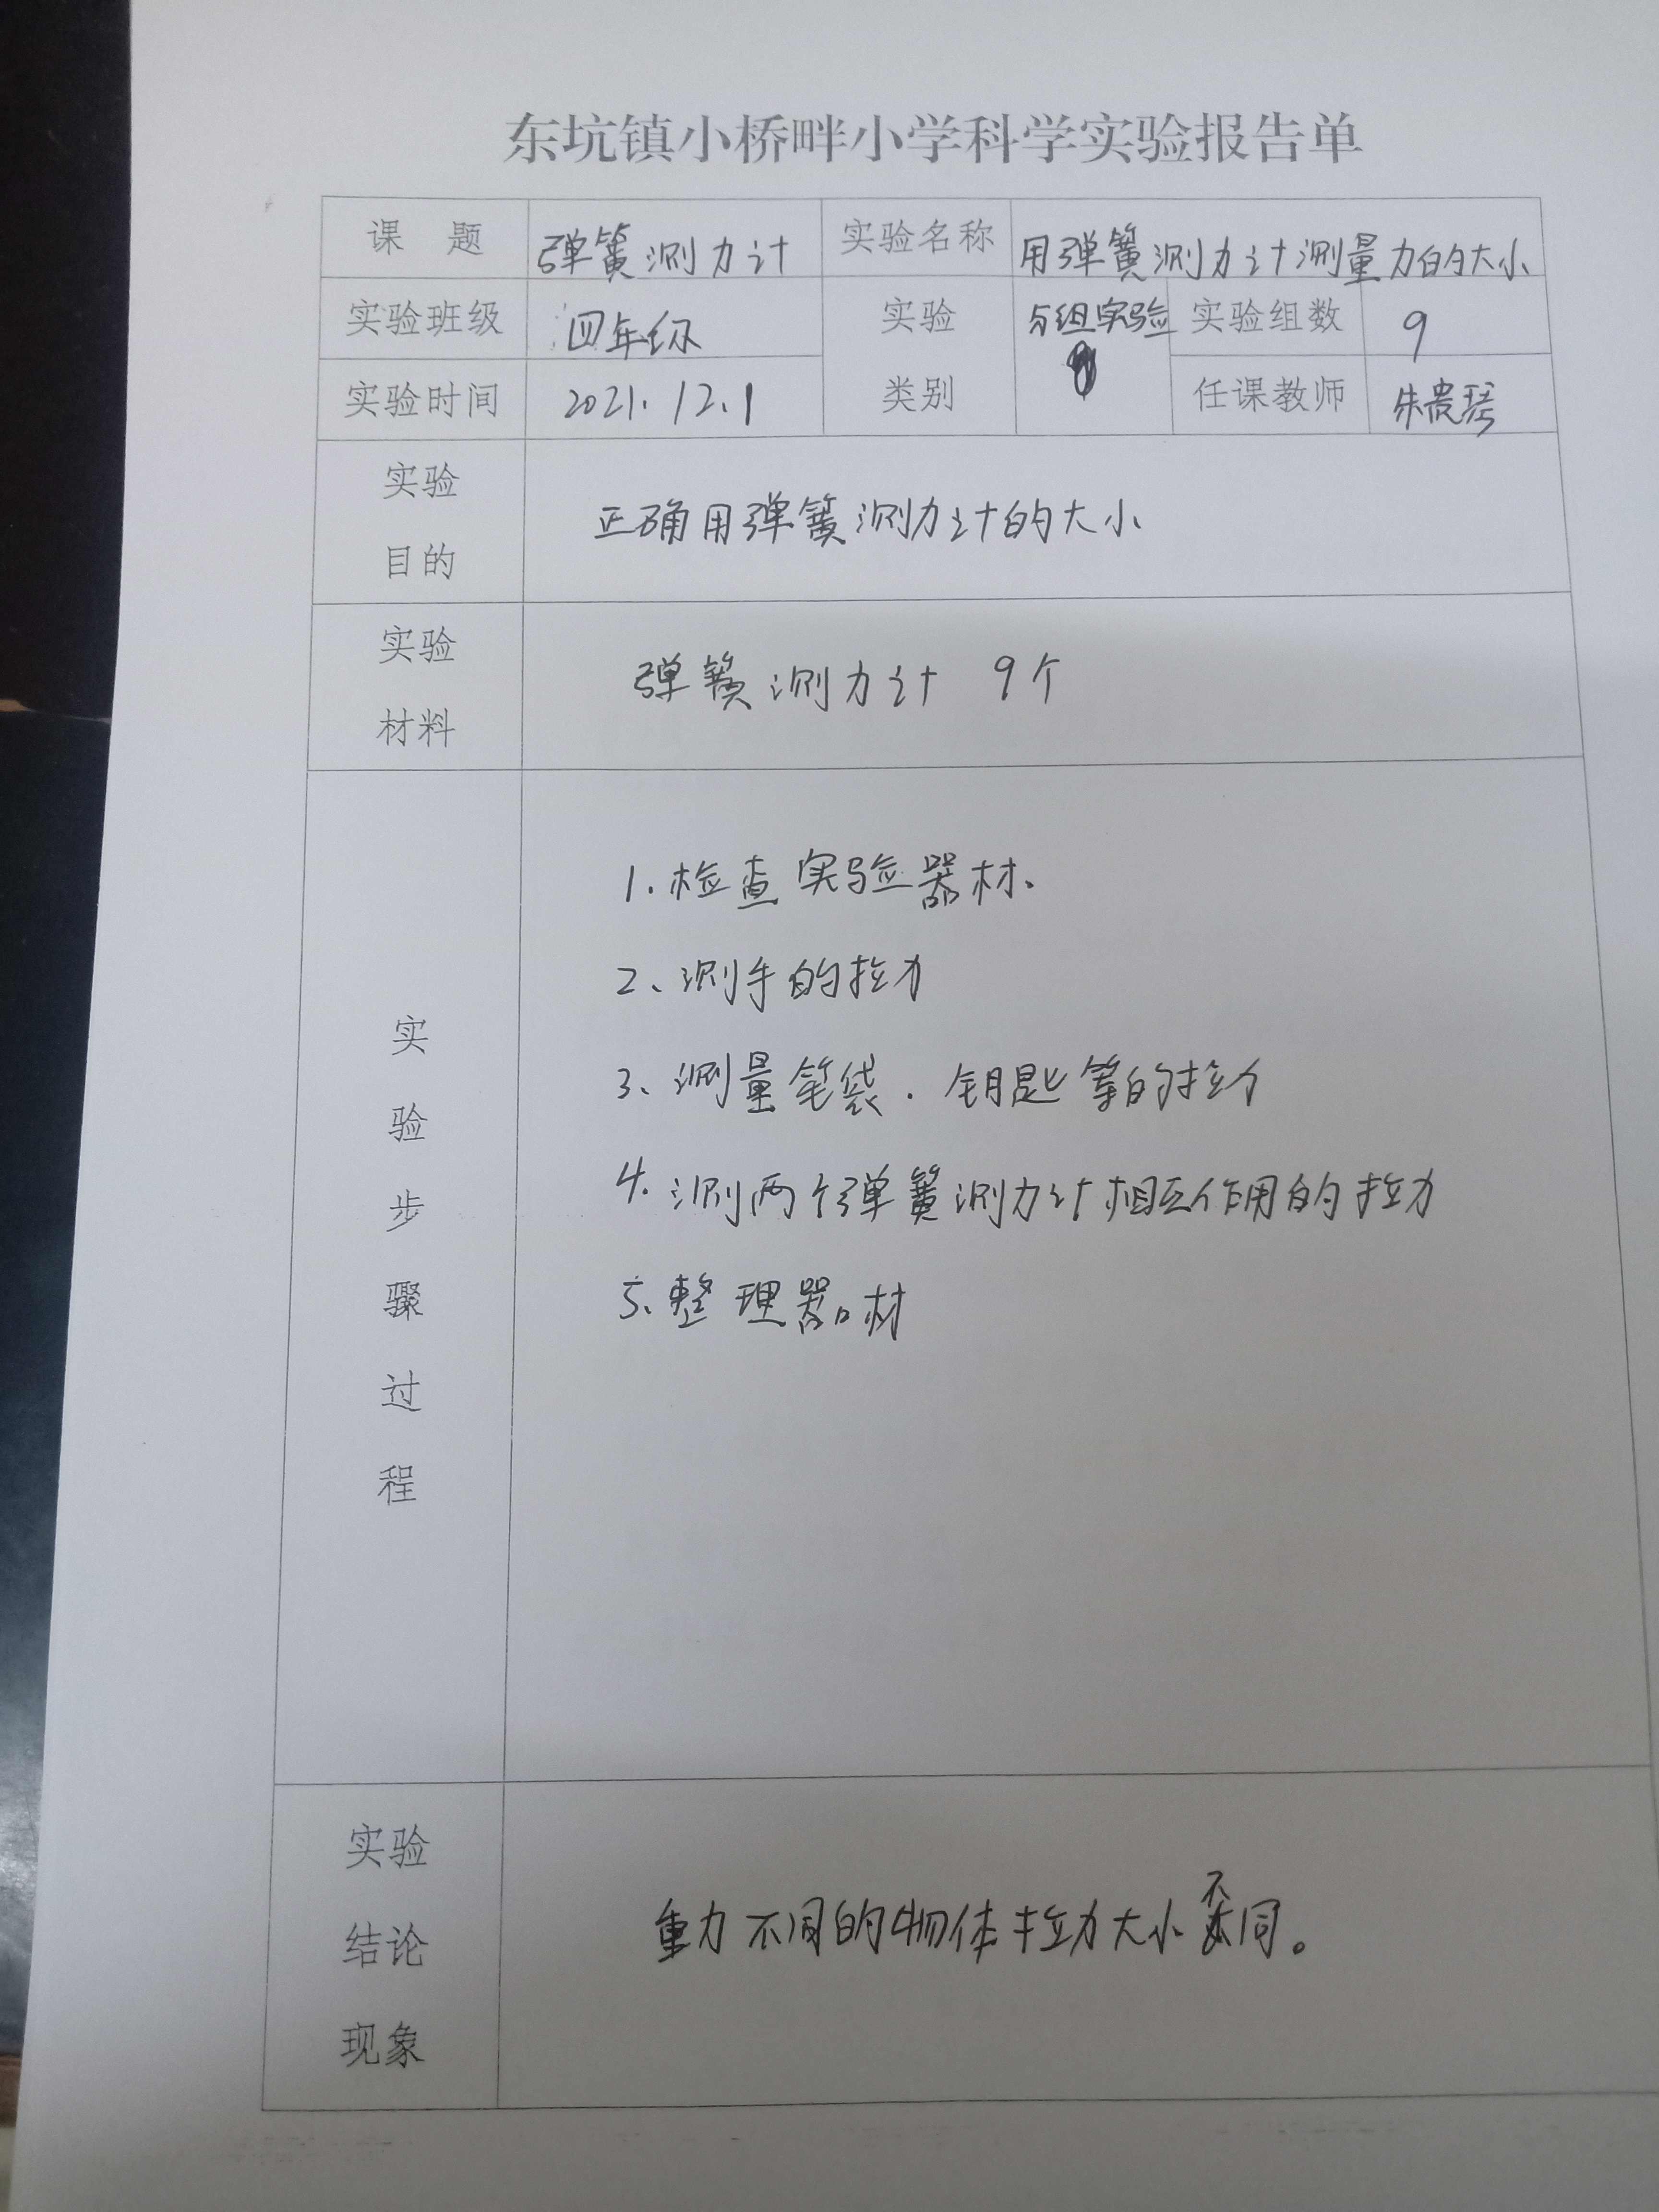 东坑镇小桥畔小学科学实验报告单
课 题 弹簧测力计 实验名称 用弹簧测力计测量力的大小
实验班级 四年级 实验 分组实验 实验组数 9
实验时间 2021.12.1 类别 任课教师 朱贵琴
实验
目的
正确用弹簧测力计的大小
实验
材料
弹簧测力计 9个
实
验
步
骤
过
程
1.检查实验器材.
2、测手的拉力
3、测量笔袋.钥匙等的拉力
4.测两个弹簧测力计相互作用的拉力
5、整理器材
实验
结论
现象
重力不同的物体拉力大小不同。